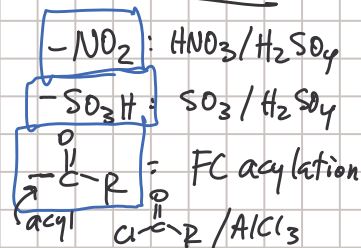 -NO2: HNO3/H2SO4
-SO3H: SO3/H2SO4
O
-C-R = FC acylation
acyl
O
Cl-C-R/AlCl3